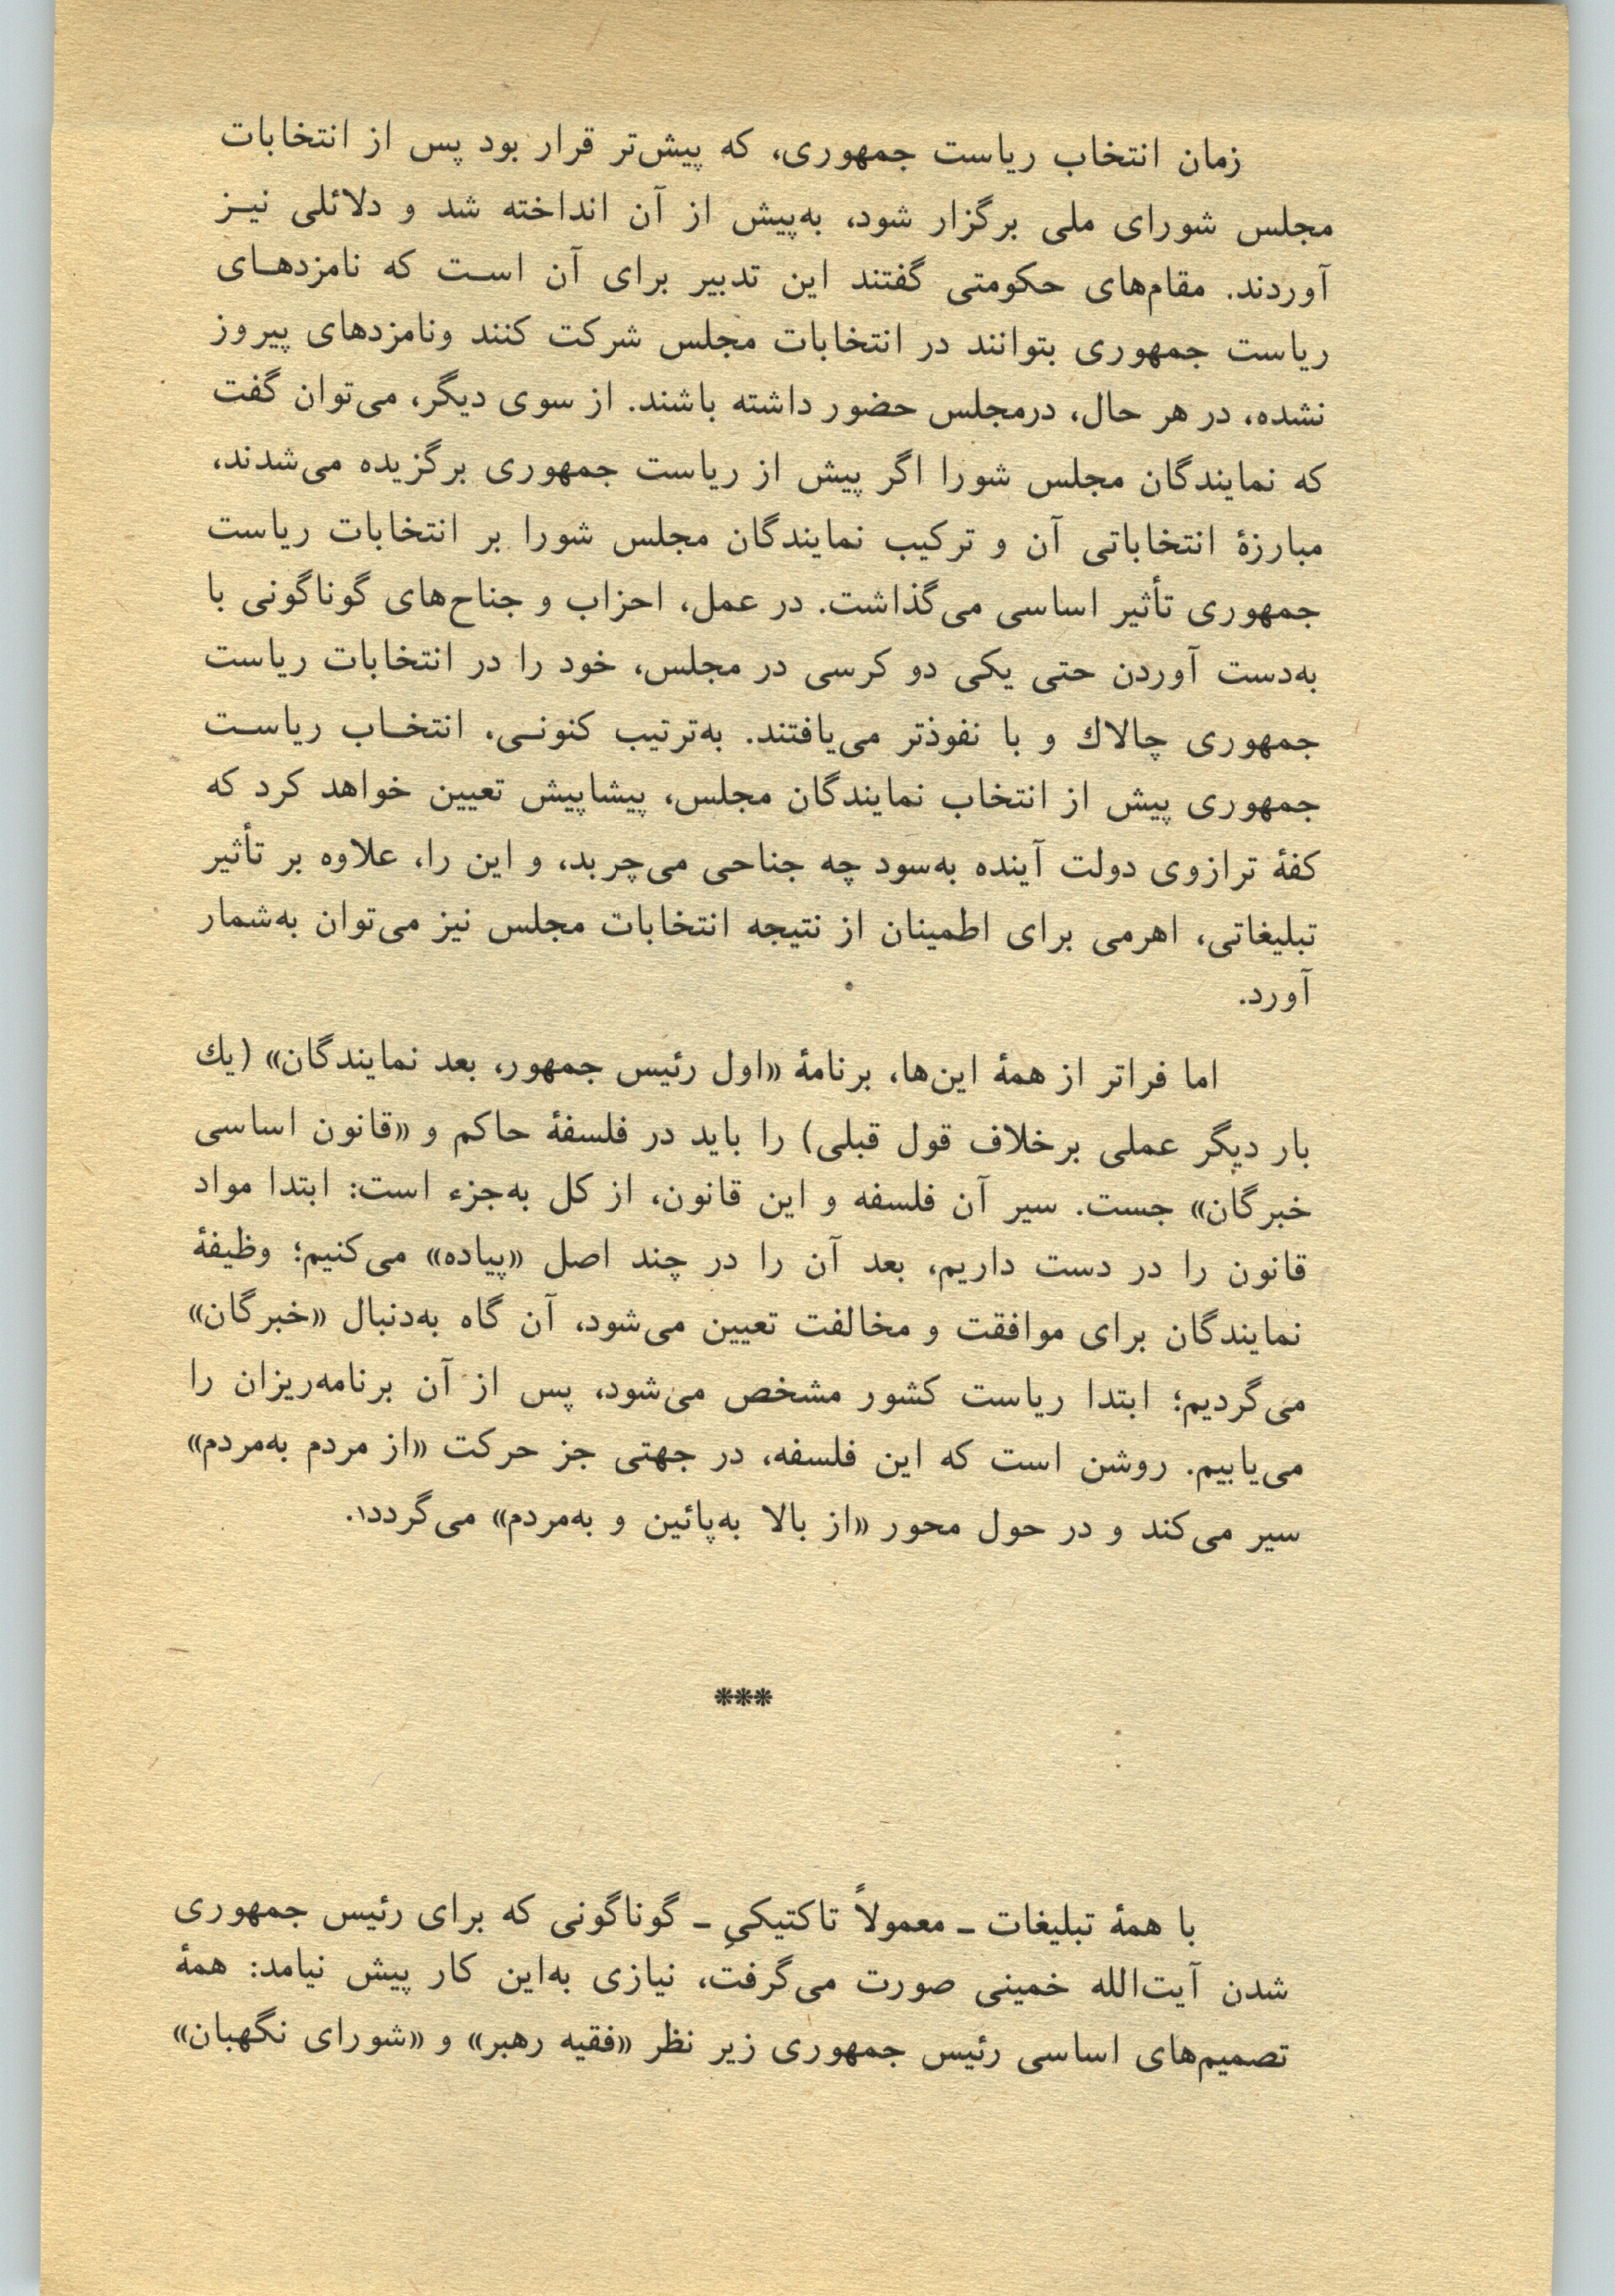 زمان انتخاب ریاست جمهوری، که پیش‌تر قرار بود پس از انتخابات
مجلس شورای ملی برگزار شود، به‌پیش از آن انداخته شد و دلائلی نیـز
آوردند. مقام‌های حکومتی گفتند این تدبیر برای آن اسـت که نامزدهـای
ریاست جمهوری بتوانند در انتخابات مجلس شرکت کنند ونامزدهای پیروز
نشده، در هر حال، درمجلس حضور داشته باشند. از سوی دیگر، می‌توان گفت
که نمایندگان مجلس شورا اگر پیش از ریاست جمهوری برگزیده می‌شدند،
مبارزهٔ انتخاباتی آن و ترکیب نمایندگان مجلس شورا بر انتخابات ریاست
جمهوری تأثیر اساسی می‌گذاشت. در عمل، احزاب و جناح‌های گوناگونی با
به‌دست آوردن حتی یکی دو کرسی در مجلس، خود را در انتخابات ریاست
جمهوری چالاك و با نفوذتر می‌یافتند. به‌ترتیب کنونـی، انتخـاب ریاسـت
جمهوری پیش از انتخاب نمایندگان مجلس، پیشاپیش تعیین خواهد کرد که
کفهٔ ترازوی دولت آینده به‌سود چه جناحی می‌چربد، و این را، علاوه بر تأثیر
تبلیغاتی، اهرمی برای اطمینان از نتیجه انتخابات مجلس نیز می‌توان به‌شمار
آورد.
اما فراتر از همهٔ این‌ها، برنامهٔ «اول رئیس جمهور، بعد نمایندگان» (یك
بار دیگر عملی برخلاف قول قبلی) را باید در فلسفهٔ حاکم و «قانون اساسی
خبرگان» جست. سیر آن فلسفه و این قانون، از کل به‌جزء است: ابتدا مواد
قانون را در دست داریم، بعد آن را در چند اصل «پیاده» می‌کنیم؛ وظیفهٔ
نمایندگان برای موافقت و مخالفت تعیین می‌شود، آن گاه به‌دنبال «خبرگان»
می‌گردیم؛ ابتدا ریاست کشور مشخص می‌شود، پس از آن برنامه‌ریزان را
می‌یابیم. روشن است که این فلسفه، در جهتی جز حرکت «از مردم به‌مردم»
سیر می‌کند و در حول محور «از بالا به‌پائین و به‌مردم» می‌گردد۱.
***
با همهٔ تبلیغات ـ معمولاً تاکتیکیِ ـ گوناگونی که برای رئیس جمهوری
شدن آیت‌الله خمینی صورت می‌گرفت، نیازی به‌این کار پیش نیامد: همهٔ
تصمیم‌های اساسی رئیس جمهوری زیر نظر «فقیه رهبر» و «شورای نگهبان»